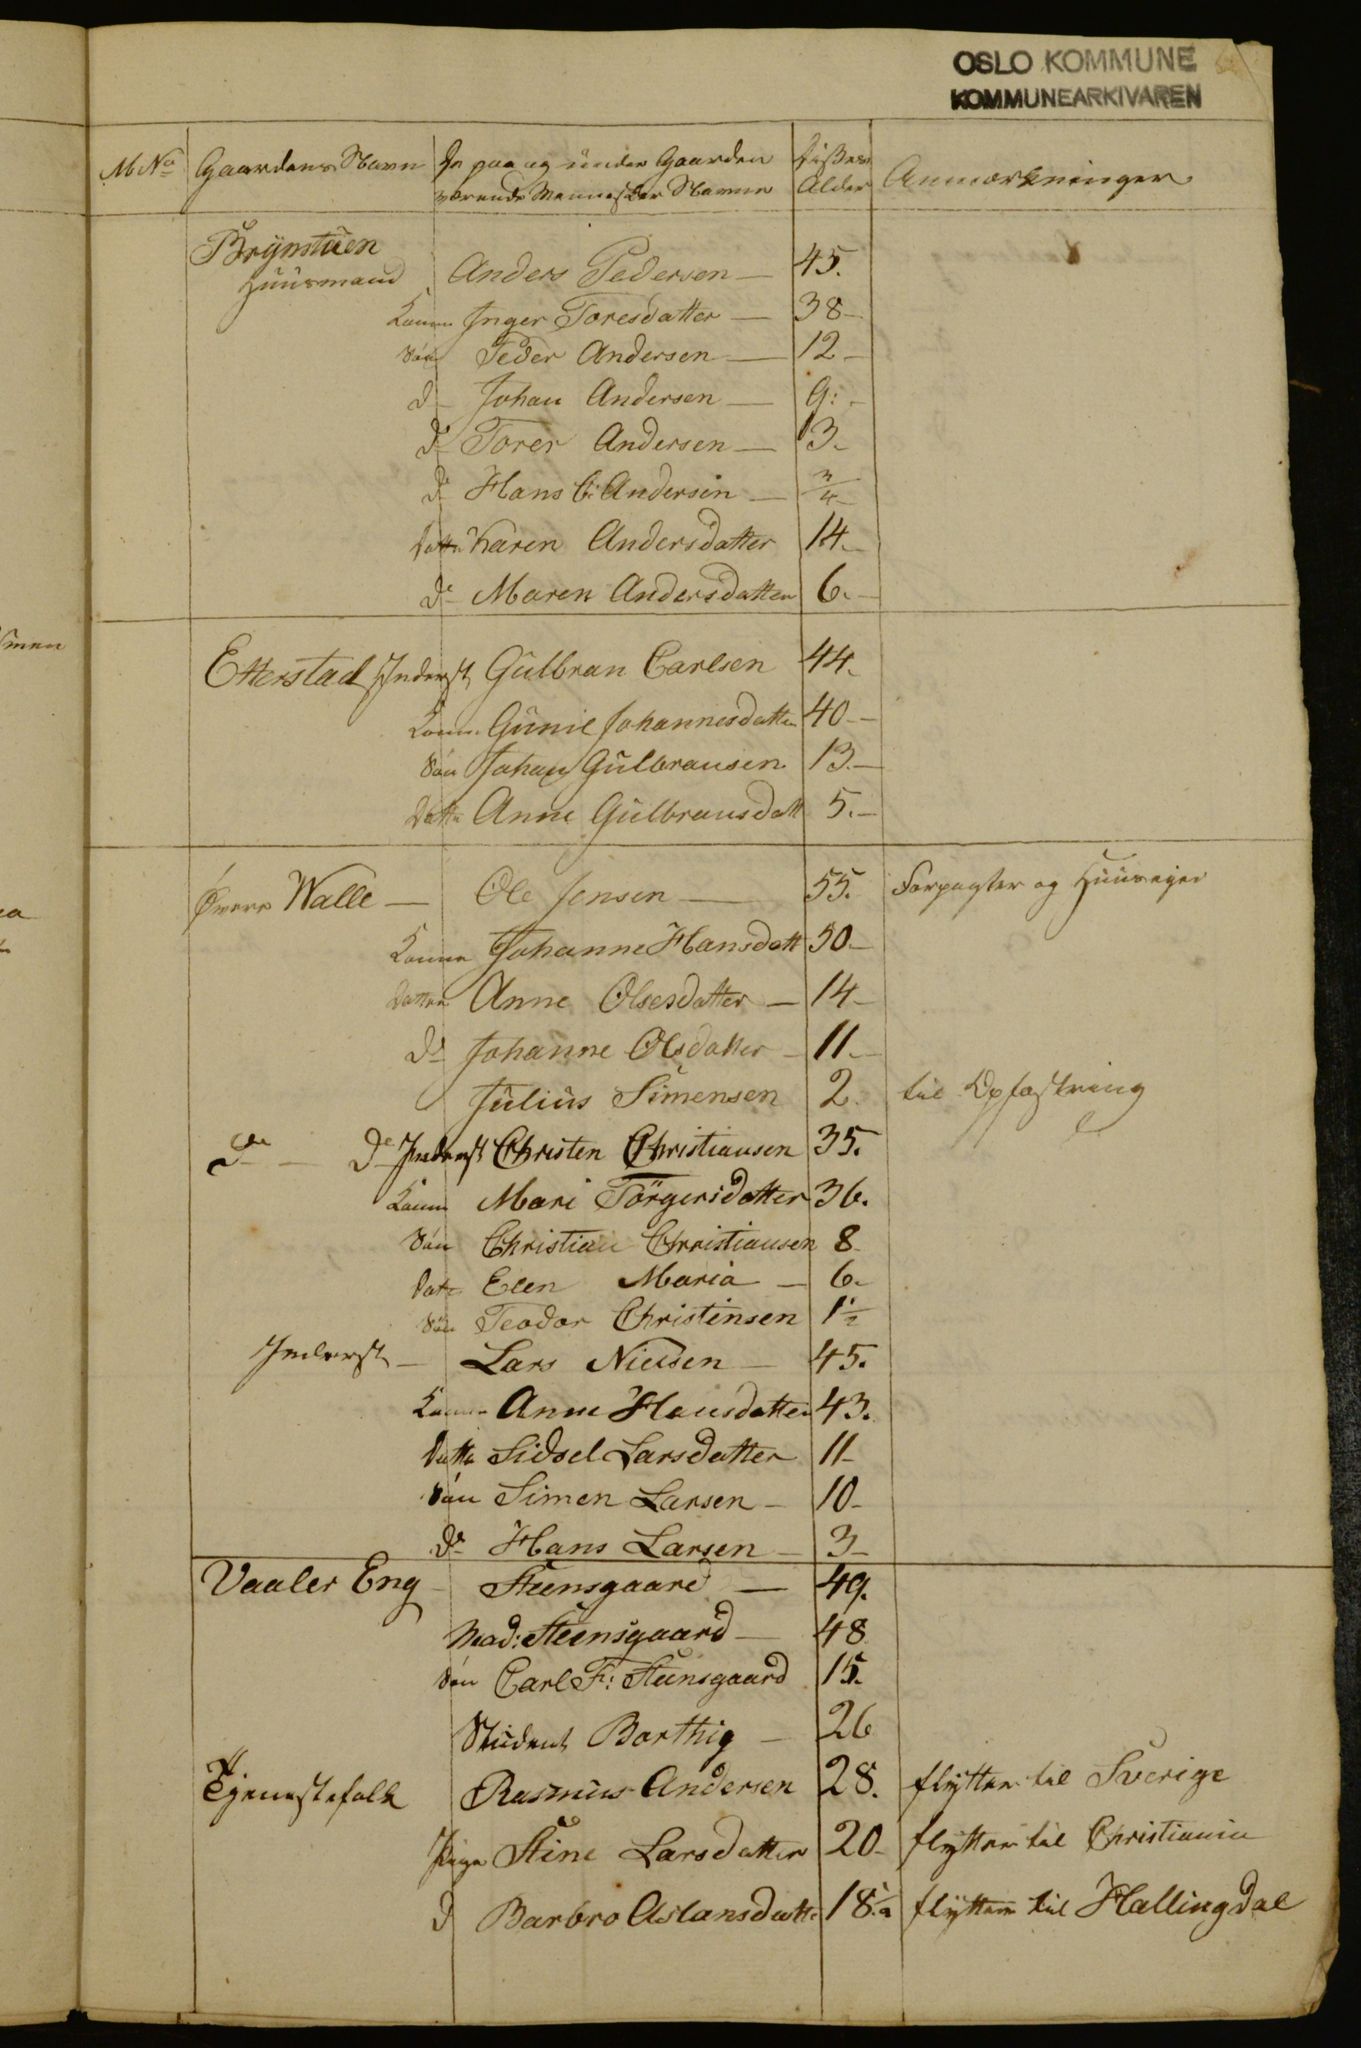 OSLO KOMMUNE
KOMMUNEARKIVAREN
M No Gaardens Navn De paa og under Gaarden værende Menneskers Navne disses Alder Anmærkninger
Brynstuen
Huusmand Anders Pedersen — 45.
Kone Inger Toresdatter — 38 –
Søn Peder Andersen — 12 –
d– Johan Andersen — 9: –
do Torer Andersen — 3 –
do Hans C: Andersen — 3/4 –
Datter Karen Andersdatter 14. –
do Maren Andersdatter 6. –
smen
Etterstad Inderst Gulbran Carlsen 44.
Kone Gunil Johannesdatter 40 –
Søn Johan Gulbransen 13. –
Datter Anne Gulbransdatt 5. –
Øvere Walle — Ole Jensen — 55. Forpagter og Huuseier
Konne Johanne Hansdatt 50 –
Datter Anne Olsesdatter — 14 –
do Johanne Olsdatter – 11. –
Julius Simensen 2. til Opfostring
do – do Inderst Christen Christiansen 35.
Kone Mari Törgersdatter 36.
Søn Christian Christiansen 8 –
Datr Elen Maria — 6. –
Søn Teodor Christensen 1 1/2
Inderst — Lars Nielsen — 45.
Konne Anne Hansdatter 43.
Datter Sidsel Larsdatter 11 –
Søn Simen Larsen – 10 –
do Hans Larsen – 3 –
Vaaler Eng – Steensgaard — 49.
Mad: Steensgaard — 48
Søn Carl F: Steensgaard 15.
Student Barthig – 26
Tjenestefolk Rasmus Andersen 28. flytter til Sverige
Pige Stine Larsdatter 20 – flytter til Christiania
d Barbro Aslansdatt: 18 1/2 flytter til Hallingdal